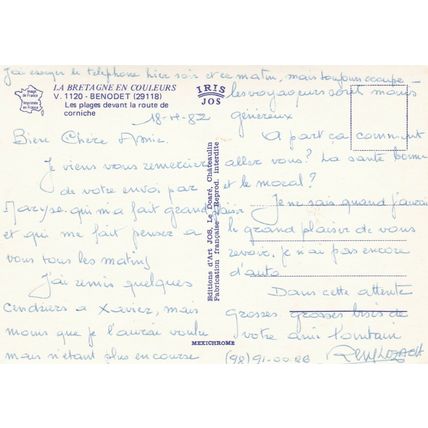 J'ai essayé le téléphone hier soir et ce matin, mais toujours occupé —
Image de France
Imprimée en France
LA BRETAGNE EN COULEURS
V. 1120 - BENODET (29118)
Les plages devant la route de
corniche
IRIS
JOS
18-11-82
Bien Chère Amie.
Je viens vous remercier
de votre envoi par
Maryse, qui m'a fait grand plaisir
et qui me fait penser à
vous tous les matins
J'ai remis quelques
cendriers à Xavier, mais
moins que je l'aurai voulu
mais n'étant plus en course
Editions d'Art JOS, Le Doaré, Châteaulin
Fabrication française - Reprod. interdite
MEXICHROME
les voyageurs sont moins
généreux
A part ça comment
allez vous? La santé bonne
et le moral?
Je ne sais quand j'aurai
le grand plaisir de vous
revoir, je n'ai pas encore
d'auto
Dans cette attente
grosses grosses bises de
votre ami lointain
(98) 91-00-28